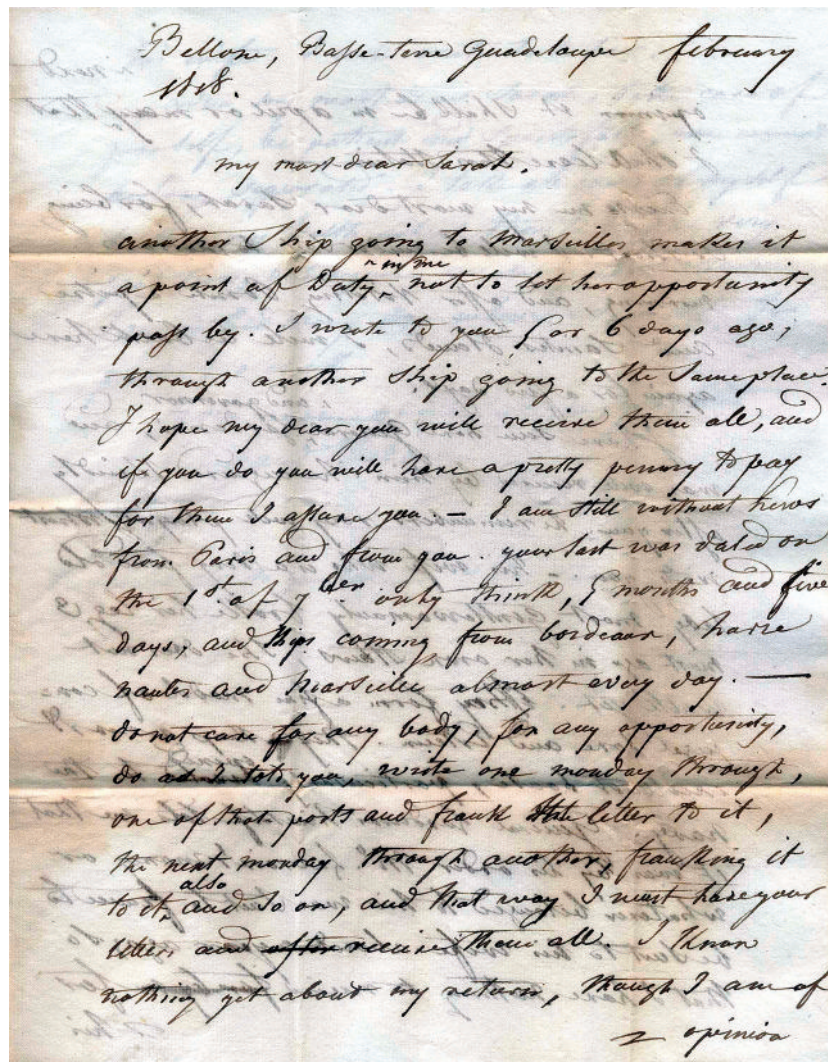 Bellone, Basse-terre Guadeloupe february
1818.
my most dear Sarah.
another Ship going to Marseilles makes it
a point of Duty, in me not to let her opportunity
pass by. I wrote to you 5 or 6 days ago,
through another ship going to the Same place.
I hope my dear you will receive them all, and
if you do you will have a pretty penny to pay
for them I assure you. — I am still without news
from Paris and from you. your last was dated on
the 1st. of 7ber. only think, 5 months and five
days, and ships coming from bordeaux, havre
nantes and Marseille almost every day. —
do not care for any body, for any opportunity,
do as I told you, wrote one monday through,
one of that ports and frank the letter to it,
the next monday through another, franking it
to it, also and so on, and that way I must have your
letters and after receive them all. I Know
nothing yet about my return, though I am of
opinion